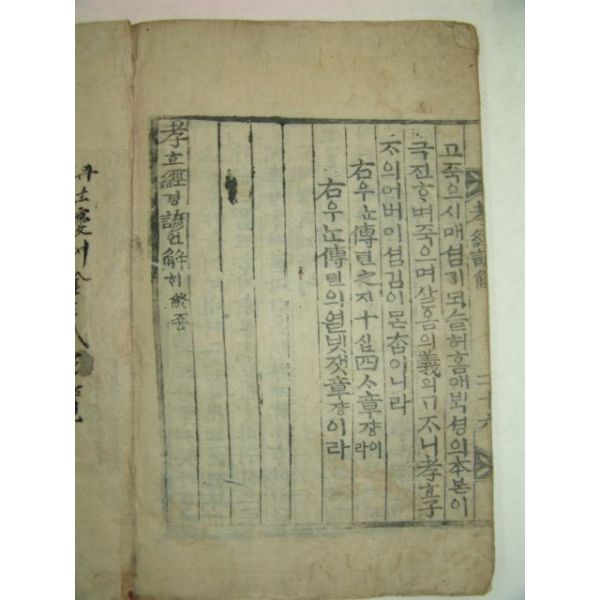 孝經諺解 二十六
고죽으시매셤기되슬허홈애ᄇᆡᆨ셩의本본이
극진ᄒᆞ며죽으며살음의義의ㅣᄀᆞᄌᆞ니孝효子
ᄌᆞ의어버이셤김이ᄆᆞᄎᆞᆷ이니라
右우ᄂᆞᆫ傳뎐之지十십四ᄉᆞ章쟝이라
右우ᄂᆞᆫ傳뎐의열넷잿章쟝이라
孝효經경諺언解ᄒᆡ終죵